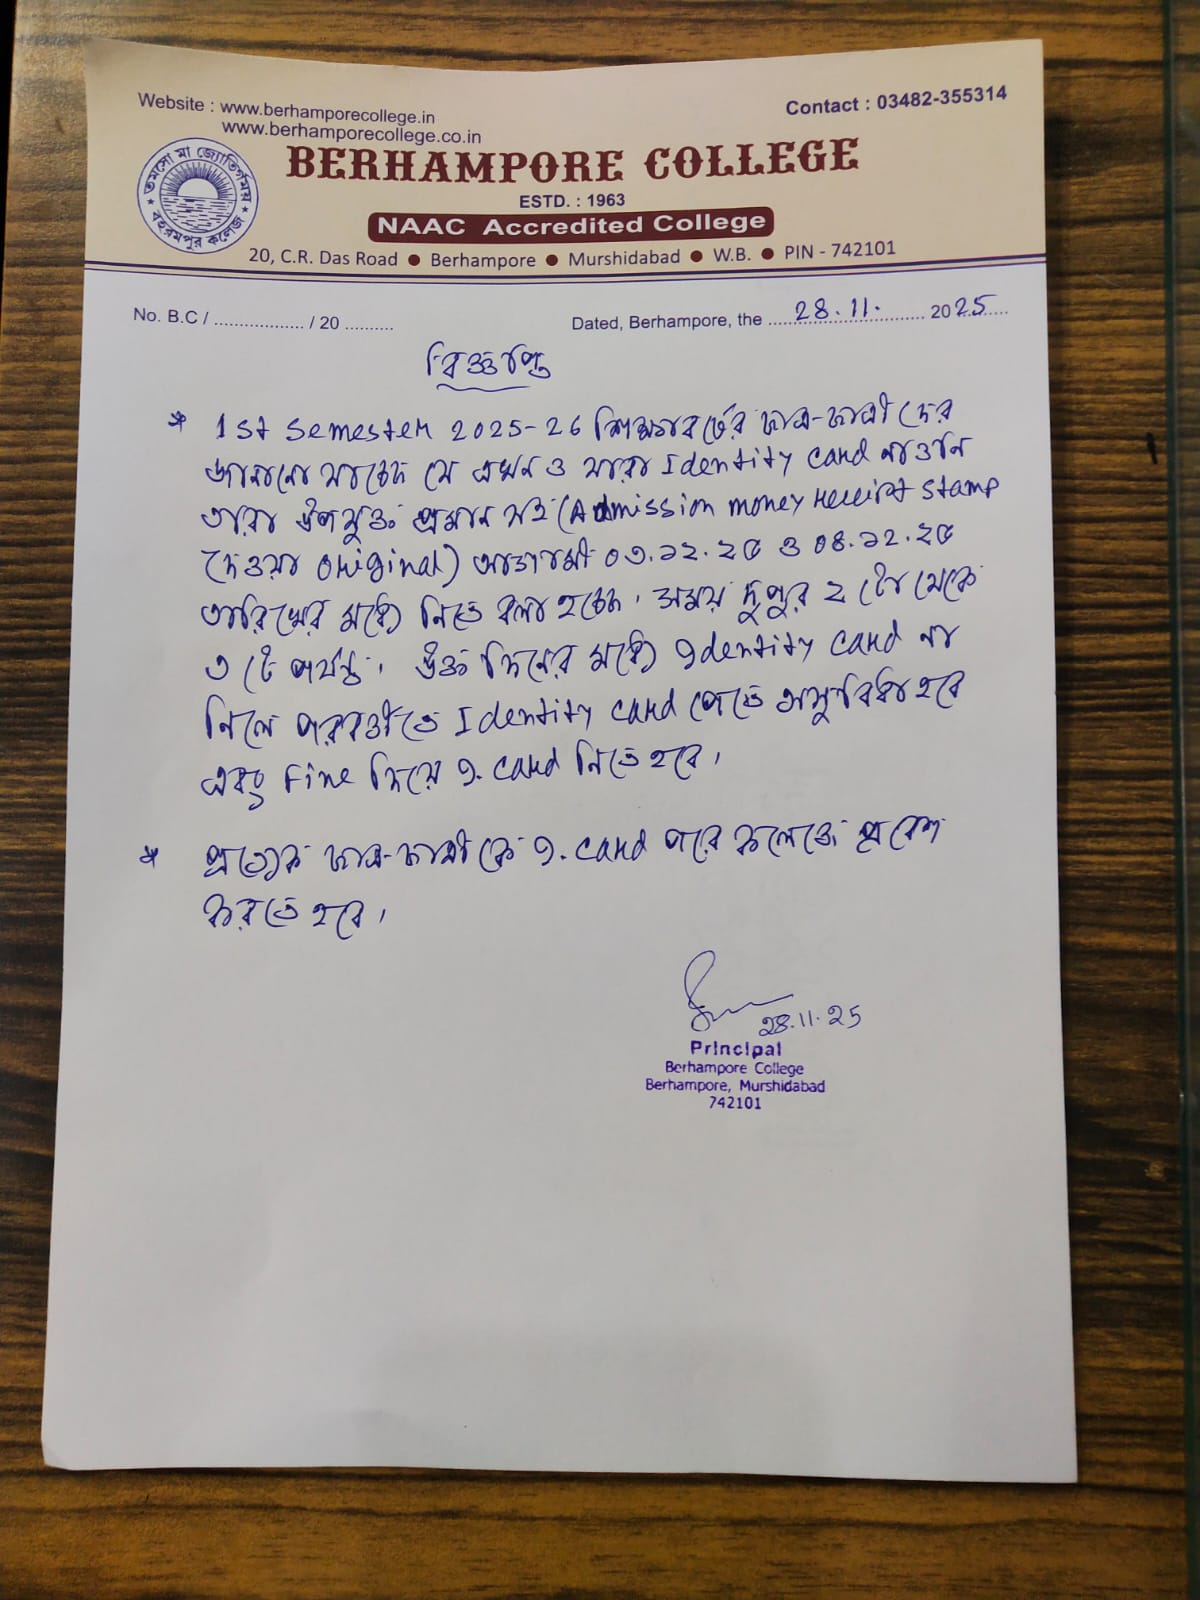 Website : www.berhamporecollege.in
www.berhamporecollege.co.in
Contact : 03482-355314
তমসো মা জ্যোতির্গময়
বহরমপুর কলেজ
BERHAMPORE COLLEGE
ESTD. : 1963
NAAC Accredited College
20, C.R. Das Road ● Berhampore ● Murshidabad ● W.B. ● PIN - 742101
No. B.C / .................. / 20 ..........
Dated, Berhampore, the 28.11. 2025
বিজ্ঞপ্তি
* 1st Semester 2025-26 শিক্ষাবর্ষের ছাত্র-ছাত্রীদের
জানানো যাচ্ছে যে এখনও যারা Identity card নাওনি
তারা উপযুক্ত প্রমান সহ (Admission money receipt stamp
দেওয়া Original) আগামী ০৩.১২.২৫ ও ০৪.১২.২৫
তারিখের মধ্যে নিতে বলা হচ্ছে। সময় দুপুর ২ টো থেকে
৩ টে পর্যন্ত। উক্ত দিনের মধ্যে Identity card না
নিলে পরবর্তীতে Identity card পেতে অসুবিধা হবে
এবং Fine দিয়ে I. card নিতে হবে।
* প্রত্যেক ছাত্র-ছাত্রীকে I. card পরে কলেজে প্রবেশ
করতে হবে।
28.11.25
Principal
Berhampore College
Berhampore, Murshidabad
742101